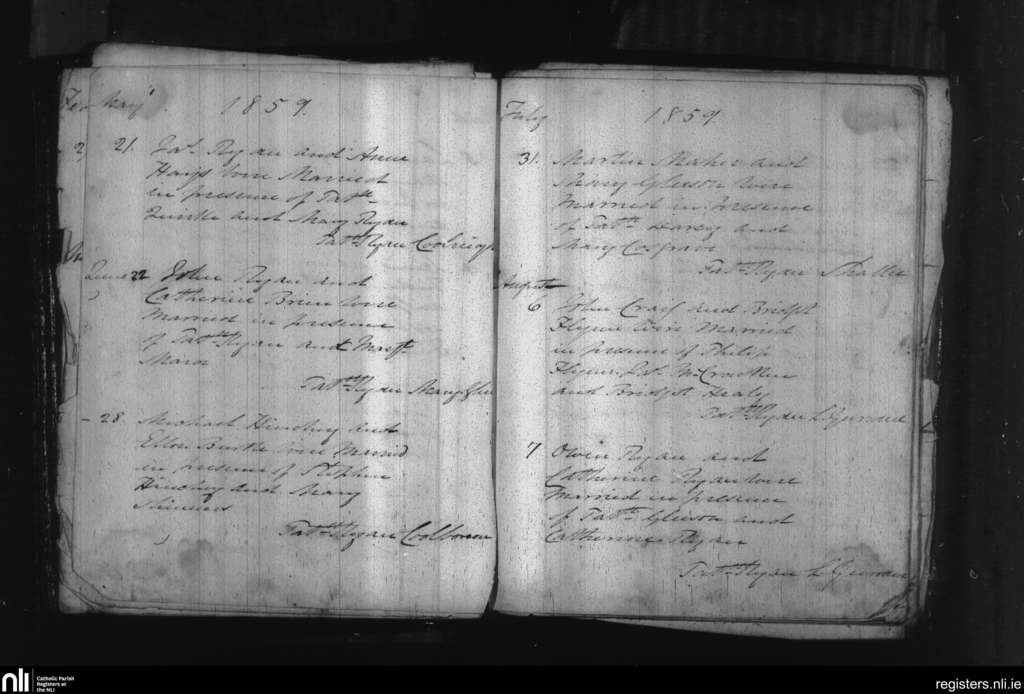 May 1859.
21. Jas. Ryan and Anne
Hays were Married
in presence of Patk.
Quirke and Mary Ryan
Patk. Ryan
June 22 John Ryan and
Catherine Brien were
Married in presence
of Patk. Ryan and
Mara
Patk. Ryan
- 28. Michael Hinchey and
Ellen Burke were Married
in presence of Stephen
Hinchey and Mary
Skinners
Patk. Ryan Coolboreen
July 1859
31. Martin Maher and
Mary Gleeson were
Married in presence
of Patk. and
Mary Cosgrave
Patk. Ryan Shallee
August
6 John Craif and Bridget
Flynn were Married
in presence of Philip
Flynn, McCracken
and Bridget Healy
Patk. Ryan
7 Owen Ryan and
Catherine Ryan were
Married in presence
of Patk. Gleeson and
Catherine Ryan
Patk. Ryan
nli
Catholic Parish
Registers at
the NLI
registers.nli.ie